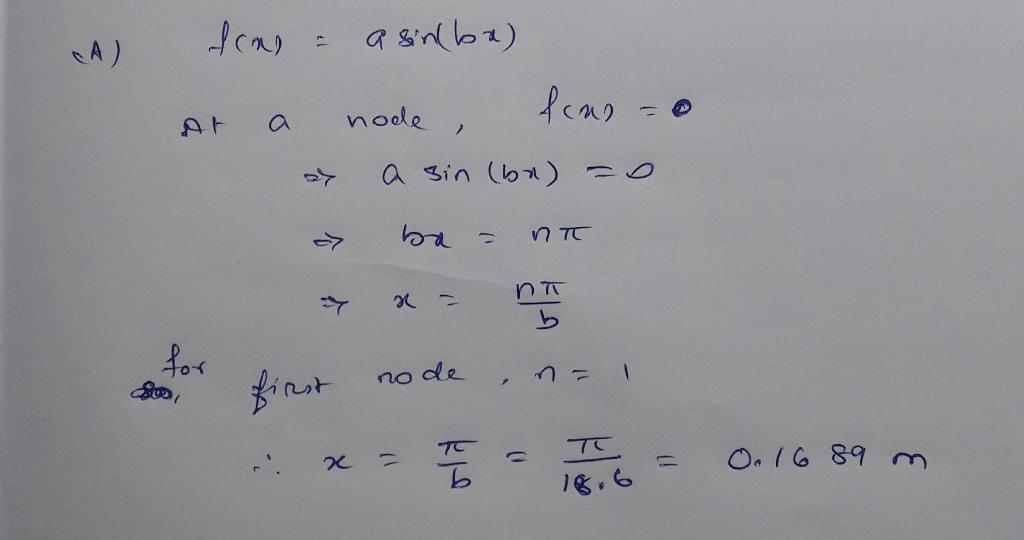 (A) f(x) = a sin(bx)
At a node, f(x) = 0
⇒ a sin (bx) = 0
⇒ bx = nπ
⇒ x = nπ/b
for first node, n = 1
∴ x = π/b = π/18.6 = 0.1689 m